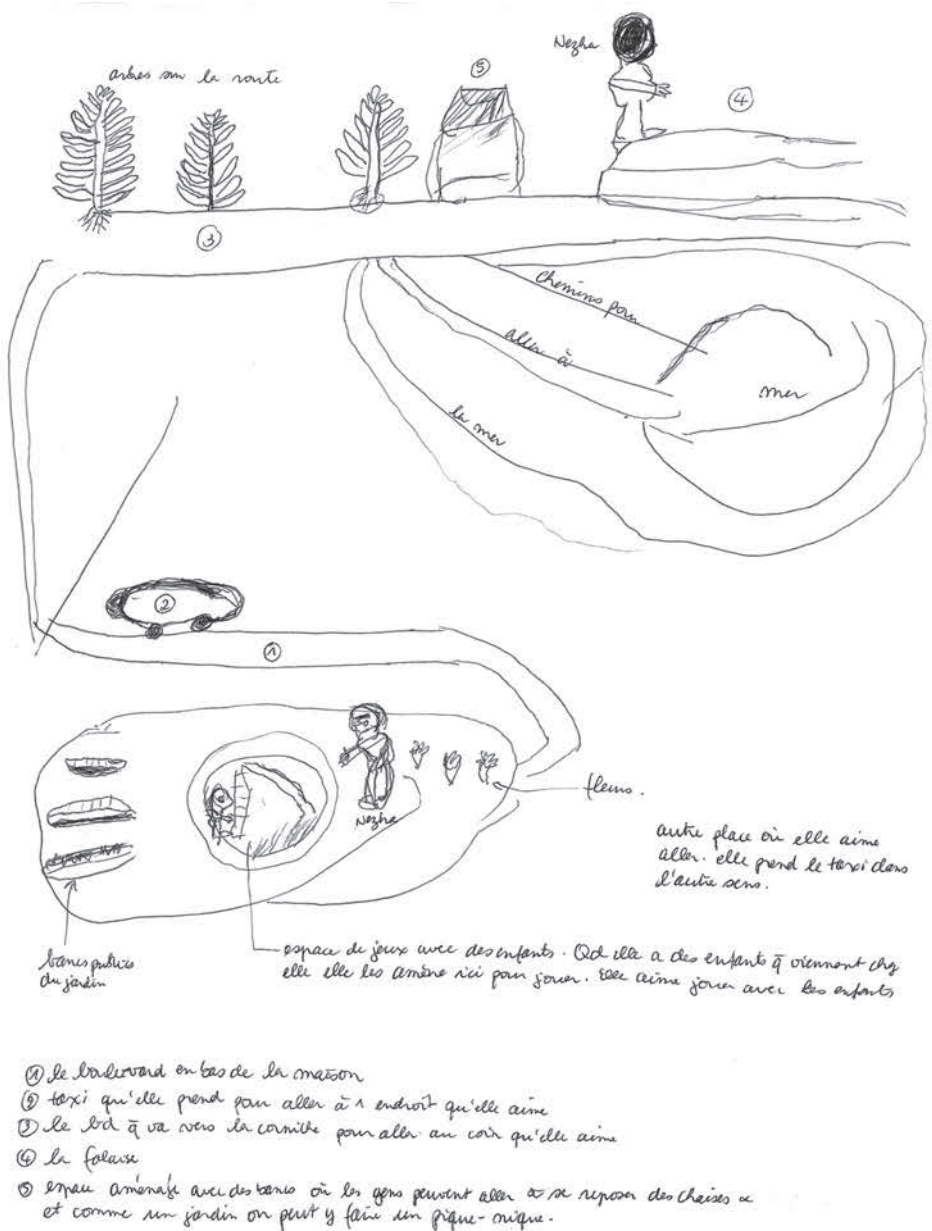 Nezha
arbres sur la route
⑤
④
③
chemins pour
aller à
la mer
mer
②
①
Nezha
fleurs.
autre place où elle aime
aller. elle prend le taxi dans
l'autre sens.
bancs publics
du jardin
espace de jeux avec des enfants. Qd elle a des enfants q̄ viennent chez
elle elle les amène ici pour jouer. Elle aime jouer avec les enfants
① le boulevard en bas de la maison
② taxi qu'elle prend pour aller à 1 endroit qu'elle aime
③ le bd q̄ va vers la corniche pour aller au coin qu'elle aime
④ la falaise
⑤ espace aménagé avec des bancs où les gens peuvent aller se reposer des chaises
et comme un jardin on peut y faire un pique-nique.